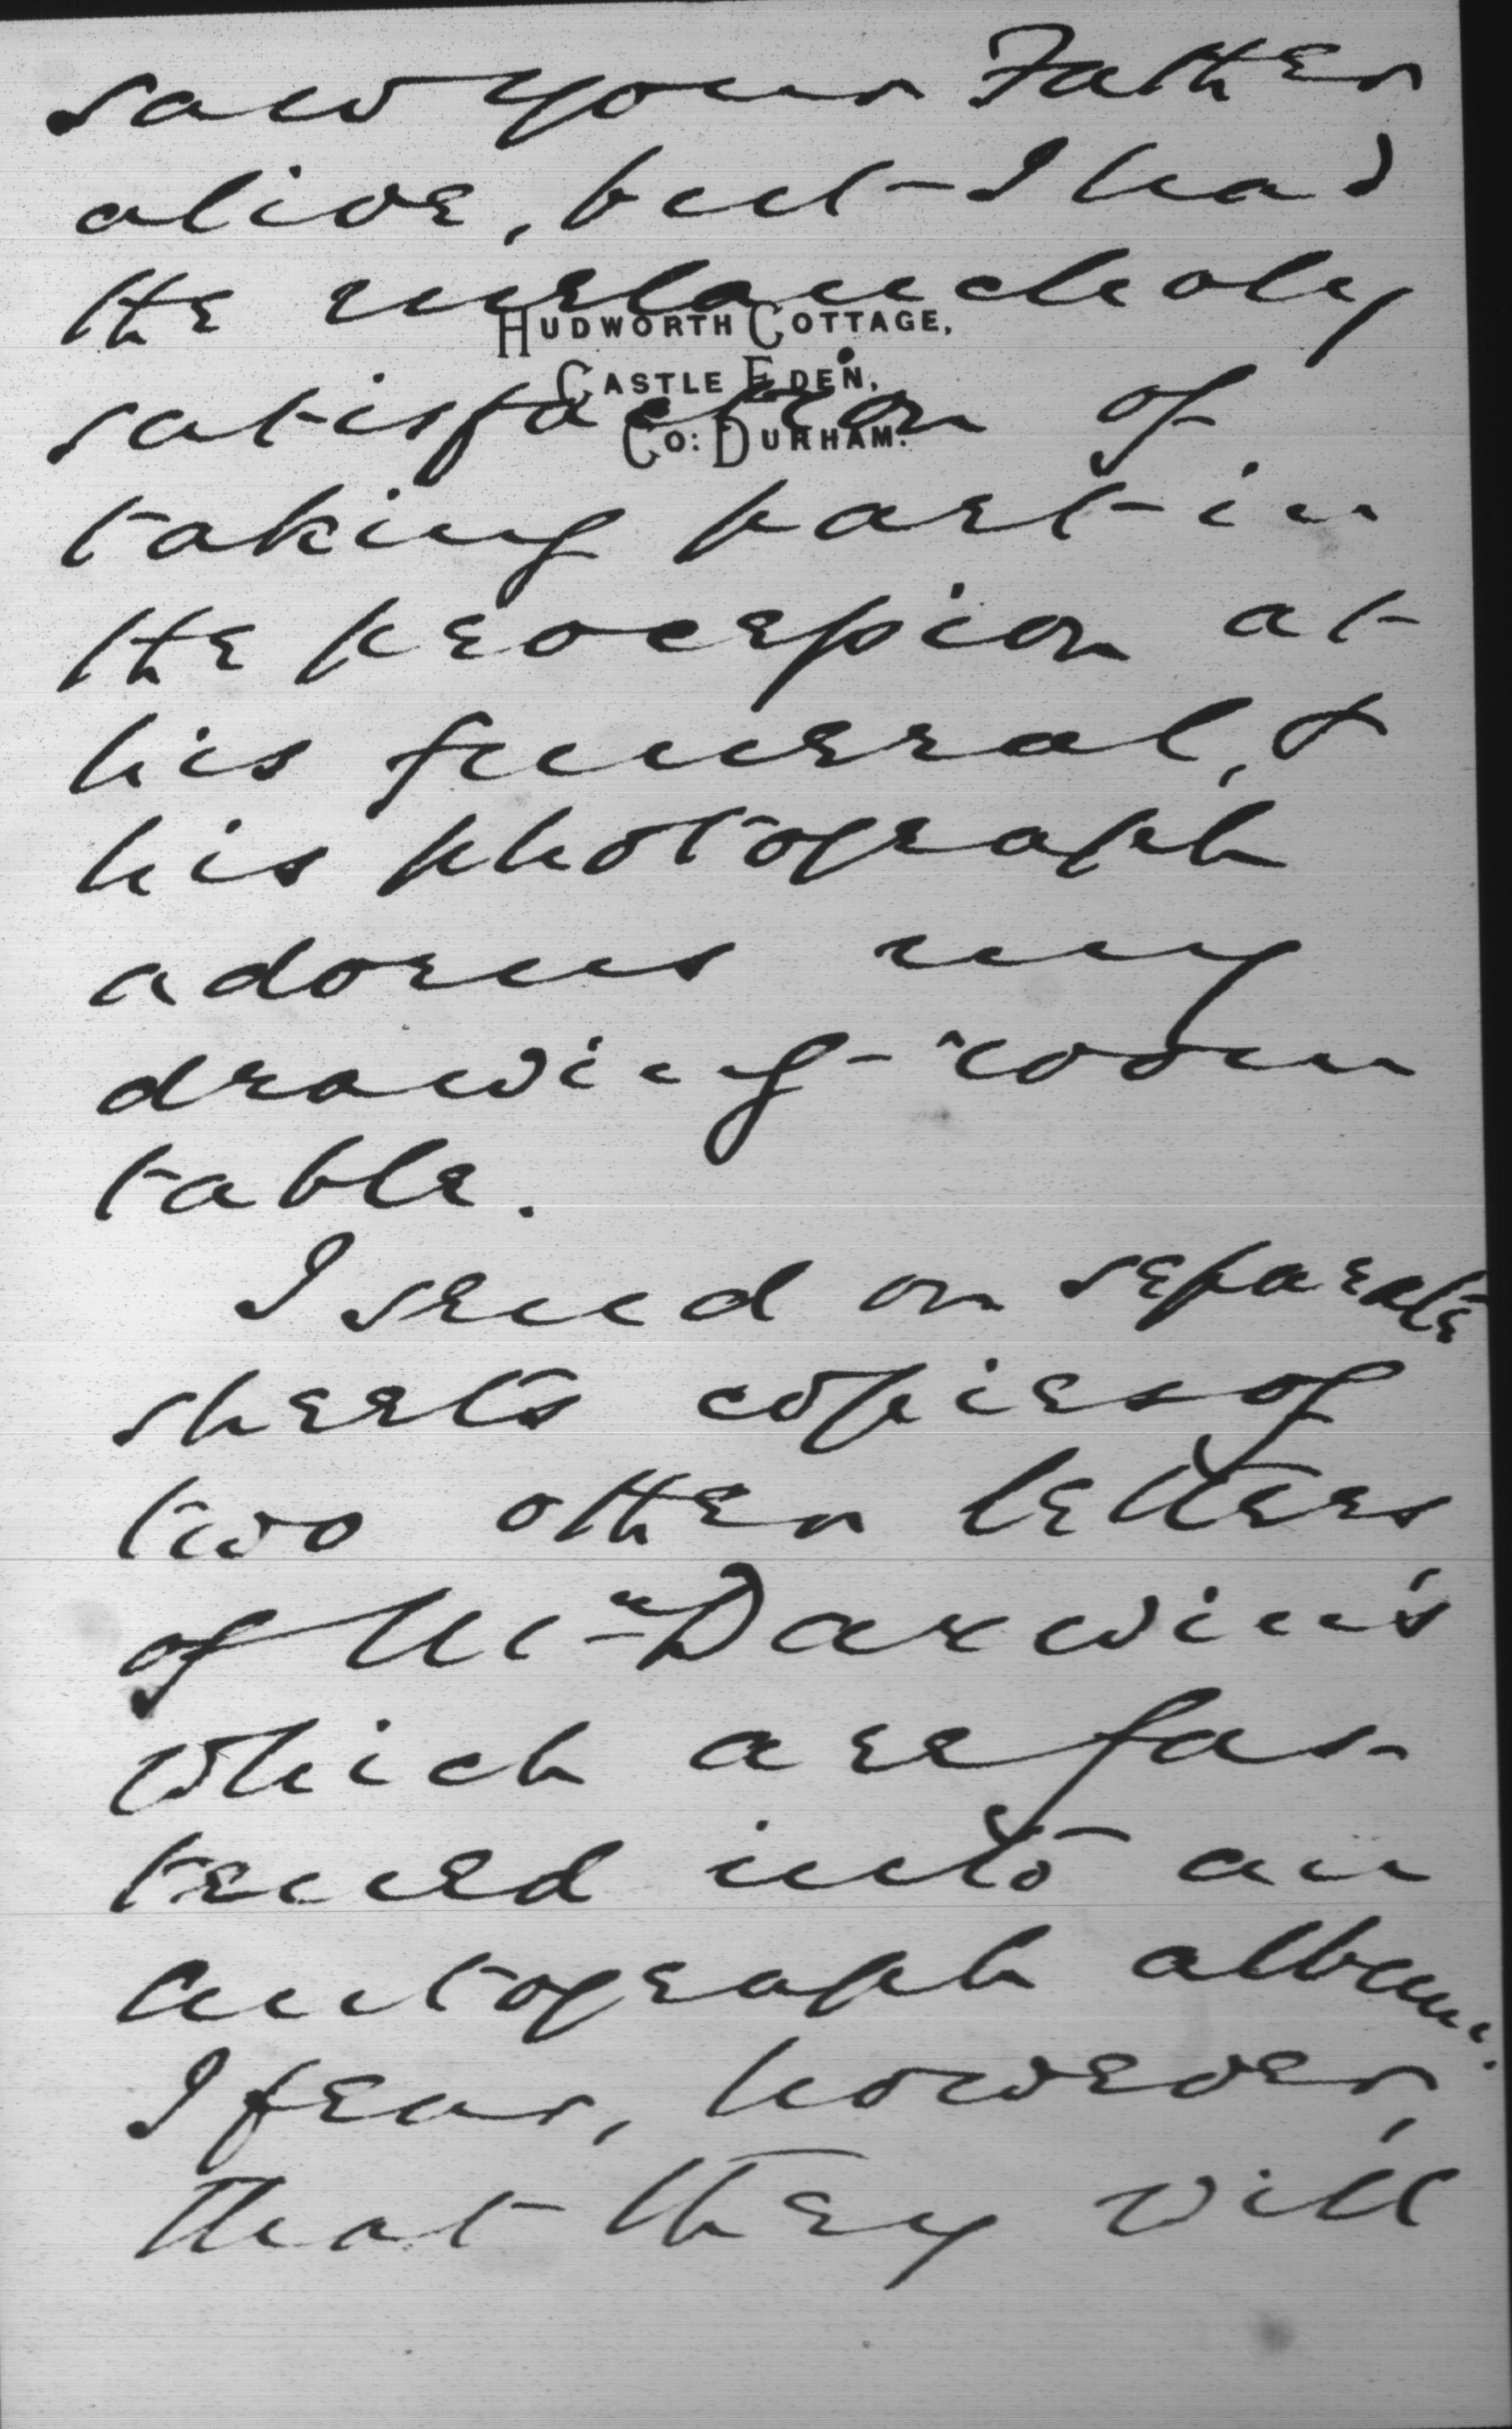 saw your Father
alive, but I had
the melancholy
HUDWORTH COTTAGE,
CASTLE EDEN,
CO: DURHAM.
satisfaction of
taking part in
the procession at
his funeral, &
his photograph
adorns my
drawing-room
table.
I send on separate
sheets copies of
two other letters
of Mr Darwin's
which are fas-
tened into an
autograph album.
I fear, however,
that they will